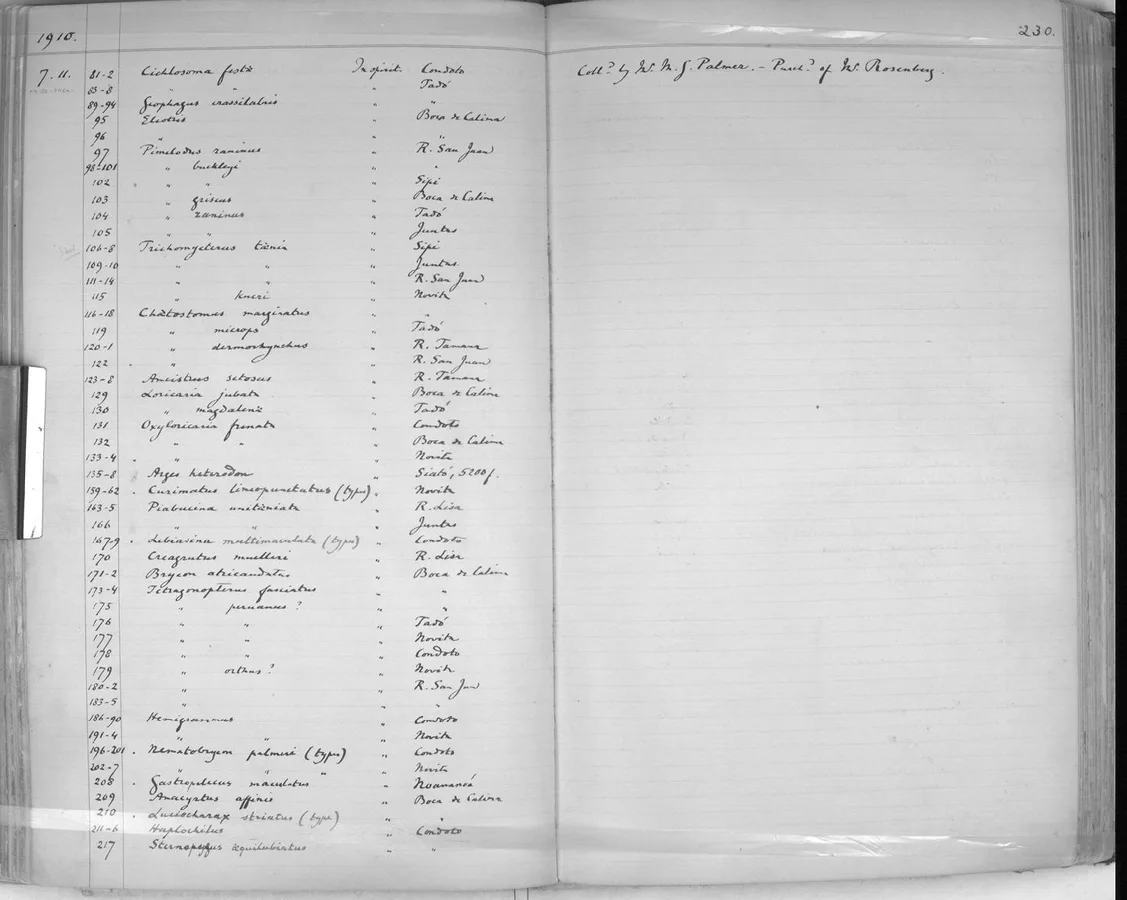 1910.
230.
7. 11. 81-2 Cichlosoma festæ In spirit. Condoto Coll.d by Mr. M. G. Palmer. – Purch.d of Mr. Rosenberg.
83-8 " " " Tadó
89-94 Geophagus crassilabris " "
95 Eleotris " Boca de Calima
96 " " "
97 Pimelodus raninus " R. San Juan
98-101 " buckleyi " "
102 " " " Sipi
103 " griseus " Boca de Calima
104 " raninus " Tadó
105 " " " Juntas
106-8 Trichomycterus tænia " Sipi
109-10 " " " Juntas
111-14 " " " R. San Juan
115 " kneri " Novita
116-18 Chætostomus marginatus " "
119 " microps " Tadó
120-1 " dermorhynchus " R. Tamana
122 " " R. San Juan
123-8 Ancistrus setosus " R. Tamana
129 Loricaria jubata " Boca de Calima
130 " magdalenæ " Tadó
131 Oxyloricaria frenata " Condoto
132 " " " Boca de Calima
133-4 " " " Novita
135-8 Arges heterodon " Siató, 5200 f.
159-62 Curimatus lineopunctatus (types) " Novita
163-5 Piabucina unitæniata " R. Lisa
166 " " " Juntas
167-9 Lebiasina multimaculata (types) " Condoto
170 Creagrutus muelleri " R. Lisa
171-2 Brycon atricaudatus " Boca de Calima
173-4 Tetragonopterus fasciatus " "
175 " peruanus ? " "
176 " " " Tadó
177 " " " Novita
178 " " " Condoto
179 " orthus ? " Novita
180-2 " " R. San Juan
183-5 " " "
186-90 Hemigrammus " Condoto
191-4 " " " Novita
196-201 Nematobrycon palmeri (types) " Condoto
202-7 " " " " Novita
208 Gastropelecus maculatus " Noananoá
209 Anacyrtus affinis " Boca de Calima
210 Luciocharax striatus (type) " "
211-6 Haplochilus " Condoto
217 Sternopygus æquilabiatus " "